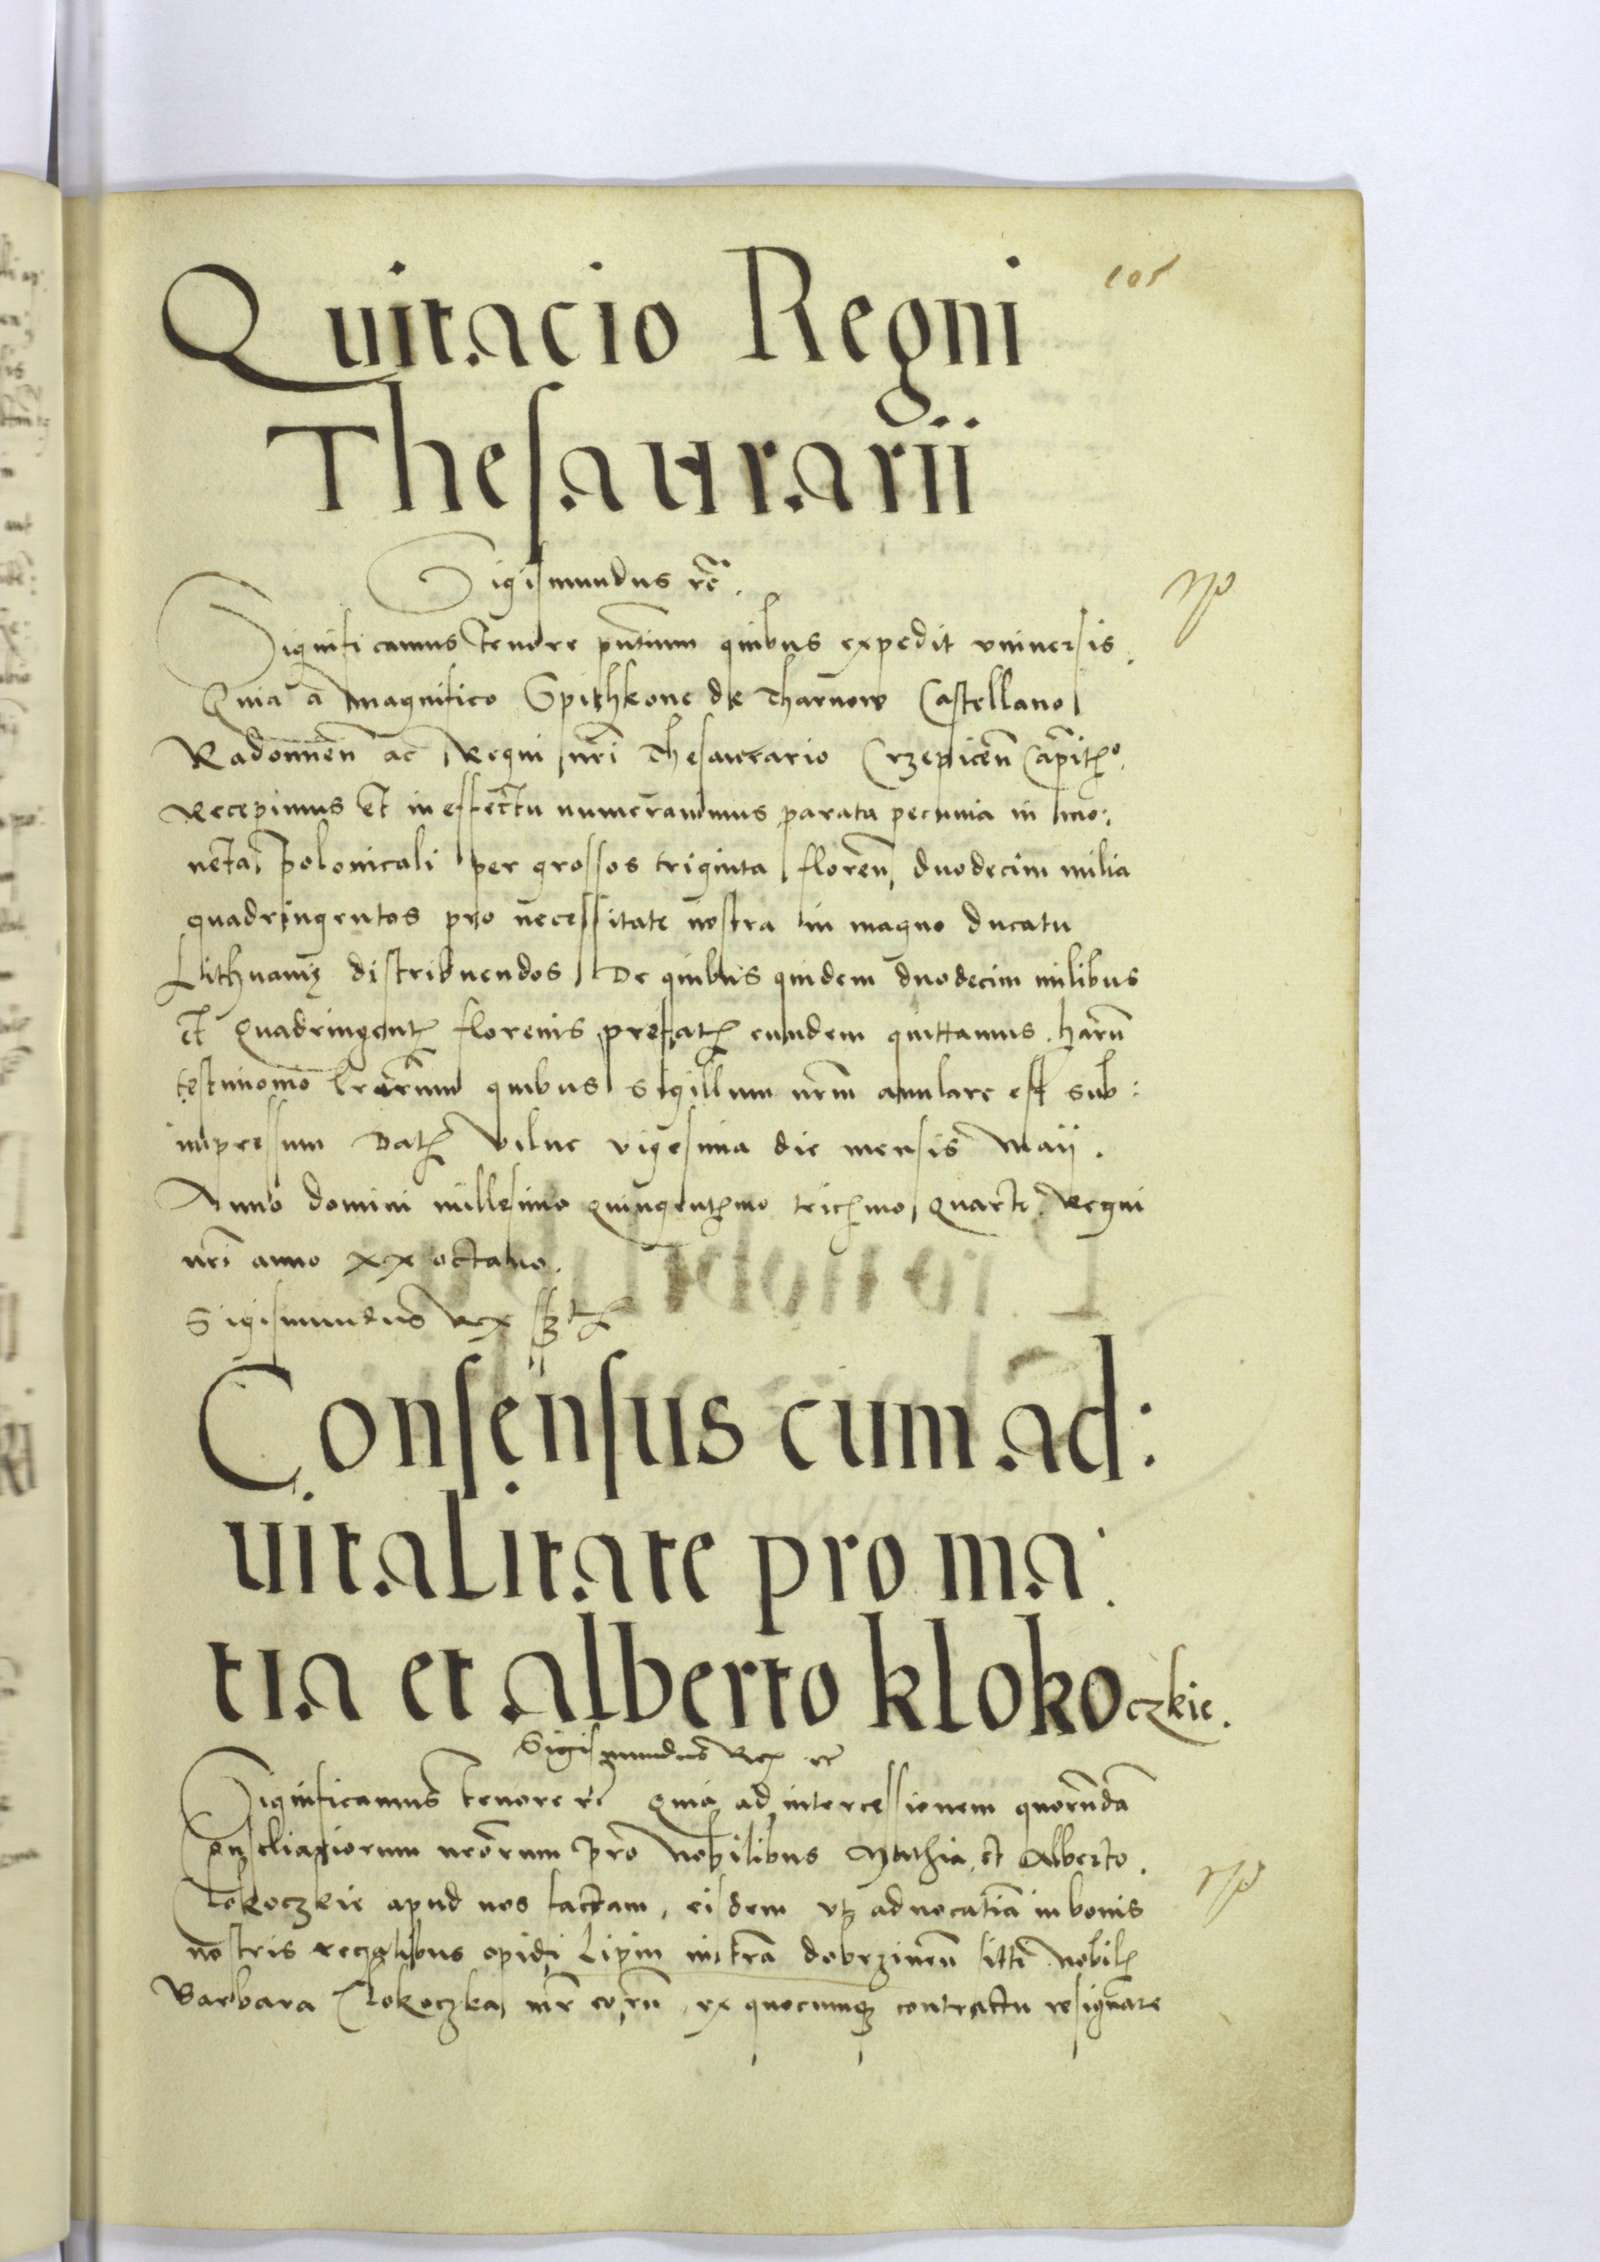 105
Quitacio Regni
Thesaurarii
Sigismundus rc̃.
Significamus tenore pñtium quibus expedit vniuersis.
Quia a magnifico Spithkone de Tharnow Castellano
Radomieñ ac Regni nr̃i Thesaurario Crzepiceñ Capit°
Recepimus et in effectu numerauimus parata pecunia in mo:
neta polonicali per grossos triginta floreñ duodecim milia
quadringentos pro necessitate nostra in magno ducatu
Lithuanię distribuendos De quibus quidem duodecim milibus
et quadringent florenis prefat eundem quittamus. harũ
testimonio lr̃arum quibus sigillum nr̃m anulare est sub:
impressum Dat Vilne vigesima die mensis Maij.
Anno domini millesimo quingent.mo tric.mo quarto Regni
nr̃i anno xx octauo.
Sigismundus Rex
Consensus cum ad:
uitalitate pro ma:
tia et alberto kloko czkie.
Sigismundus Rex rc̃
Significamus tenore rc̃ quia ad intercessionem quorundã
Consiliariorum nr̃orum pro Nobilibus Mathia et Alberto
Clokoczkie apud nos factam, eisdem vt aduocatiã in bonis
nostris regalibus opidi Lipin in terra dobrzineñ sitti Nobil
Barbara Clokoczka mr̃e eorũ, ex quocumq3 contractu resignare